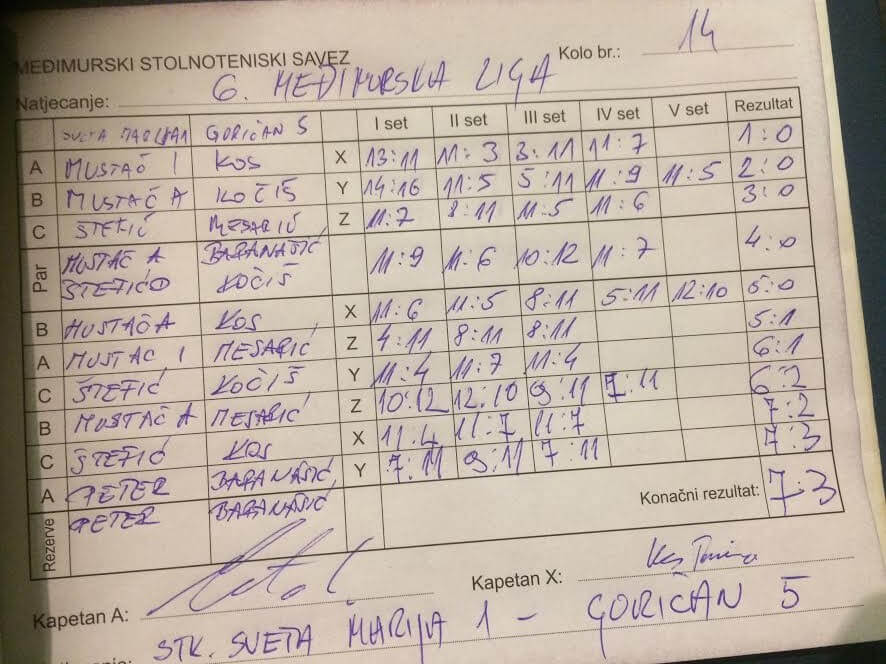 MEĐIMURSKI STOLNOTENISKI SAVEZ Kolo br.: 14
Natjecanje: 6. MEĐIMURSKA LIGA
SVETA MARIJA 1 GORIČAN 5 I set II set III set IV set V set Rezultat
A MUSTAČ I KOS X 13:11 11:3 3:11 11:7 1:0
B MUSTAČ A KOČIŠ Y 14:16 11:5 5:11 11:9 11:5 2:0
C ŠTEFIĆ MESARIĆ Z 11:7 8:11 11:5 11:6 3:0
Par MUSTAČ A BARANAŠIĆ 11:9 11:6 10:12 11:7 4:0
ŠTEFIĆ KOČIŠ
B MUSTAČ A KOS X 11:6 11:5 8:11 5:11 12:10 5:0
A MUSTAC I MESARIĆ Z 4:11 8:11 8:11 5:1
C ŠTEFIĆ KOČIŠ Y 11:4 11:7 11:4 6:1
B MUSTAČ A MESARIĆ Z 10:12 12:10 9:11 7:11 6:2
C ŠTEFIĆ KOS X 11:4 11:7 11:7 7:2
A PETER BARANAŠIĆ Y 7:11 9:11 7:11 7:3
Rezerve PETER BARANAŠIĆ Konačni rezultat: 7:3
Kapetan A: Kapetan X:
STK. SVETA MARIJA 1 - GORIČAN 5